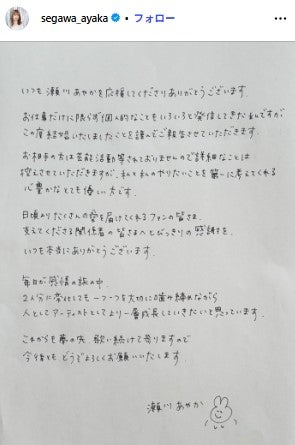 segawa_ayaka • フォロー
いつも瀬川あやかを応援してくださりありがとうございます。
お仕事だけに限らず個人的なこともいろいろと発信してきた私ですが
この度結婚いたしましたことを謹んでご報告させていただきます。
お相手の方は芸能活動等されておりませんので詳細なことは
控えさせていただきますが、私と私のやりたいことを第一に考えてくれる
心豊かなとても優しい方です。
日頃よりたくさんの愛を届けてくれるファンの皆さま、
支えてくださる関係者の皆さまへとびっきりの感謝を。
いつも本当にありがとうございます。
毎日が感情の旅の中、
2人分に増えても一つ一つを大切に噛み締めながら
人としてアーティストとしてより一層成長していきたいと思っています。
これからも夢の先、歌い続けて参りますので
今後ともどうぞよろしくお願いいたします。
瀬川あやか